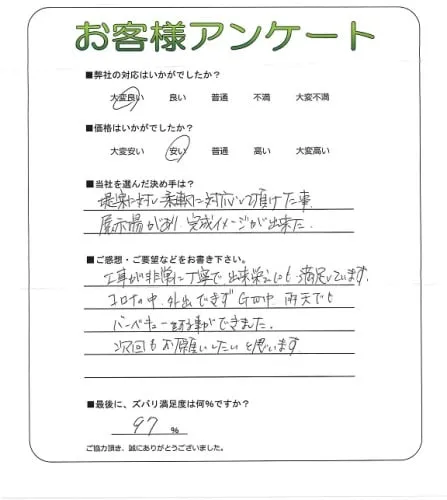 お客様アンケート
■弊社の対応はいかがでしたか？
大変良い 良い 普通 不満 大変不満
■価格はいかがでしたか？
大変安い 安い 普通 高い 大変高い
■当社を選んだ決め手は？
提案に対し柔軟に対応して頂けた事
展示場があり 完成イメージが出来た.
■ご感想・ご要望などをお書き下さい。
工事が非常に丁寧で 出来栄えにも 満足しています.
コロナの中 外出できず GW中 雨天でも
バーベキューする事ができました.
次回もお願いしたいと思います.
■最後に、ズバリ満足度は何％ですか？
97 ％
ご協力頂き、誠にありがとうございました。